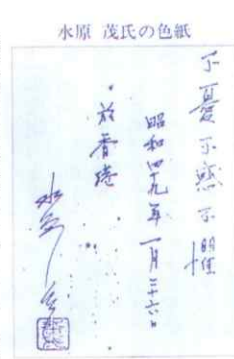 水原 茂氏の色紙
不憂不惑不懼
昭和四十九年一月二十六日
於香港
水原 茂